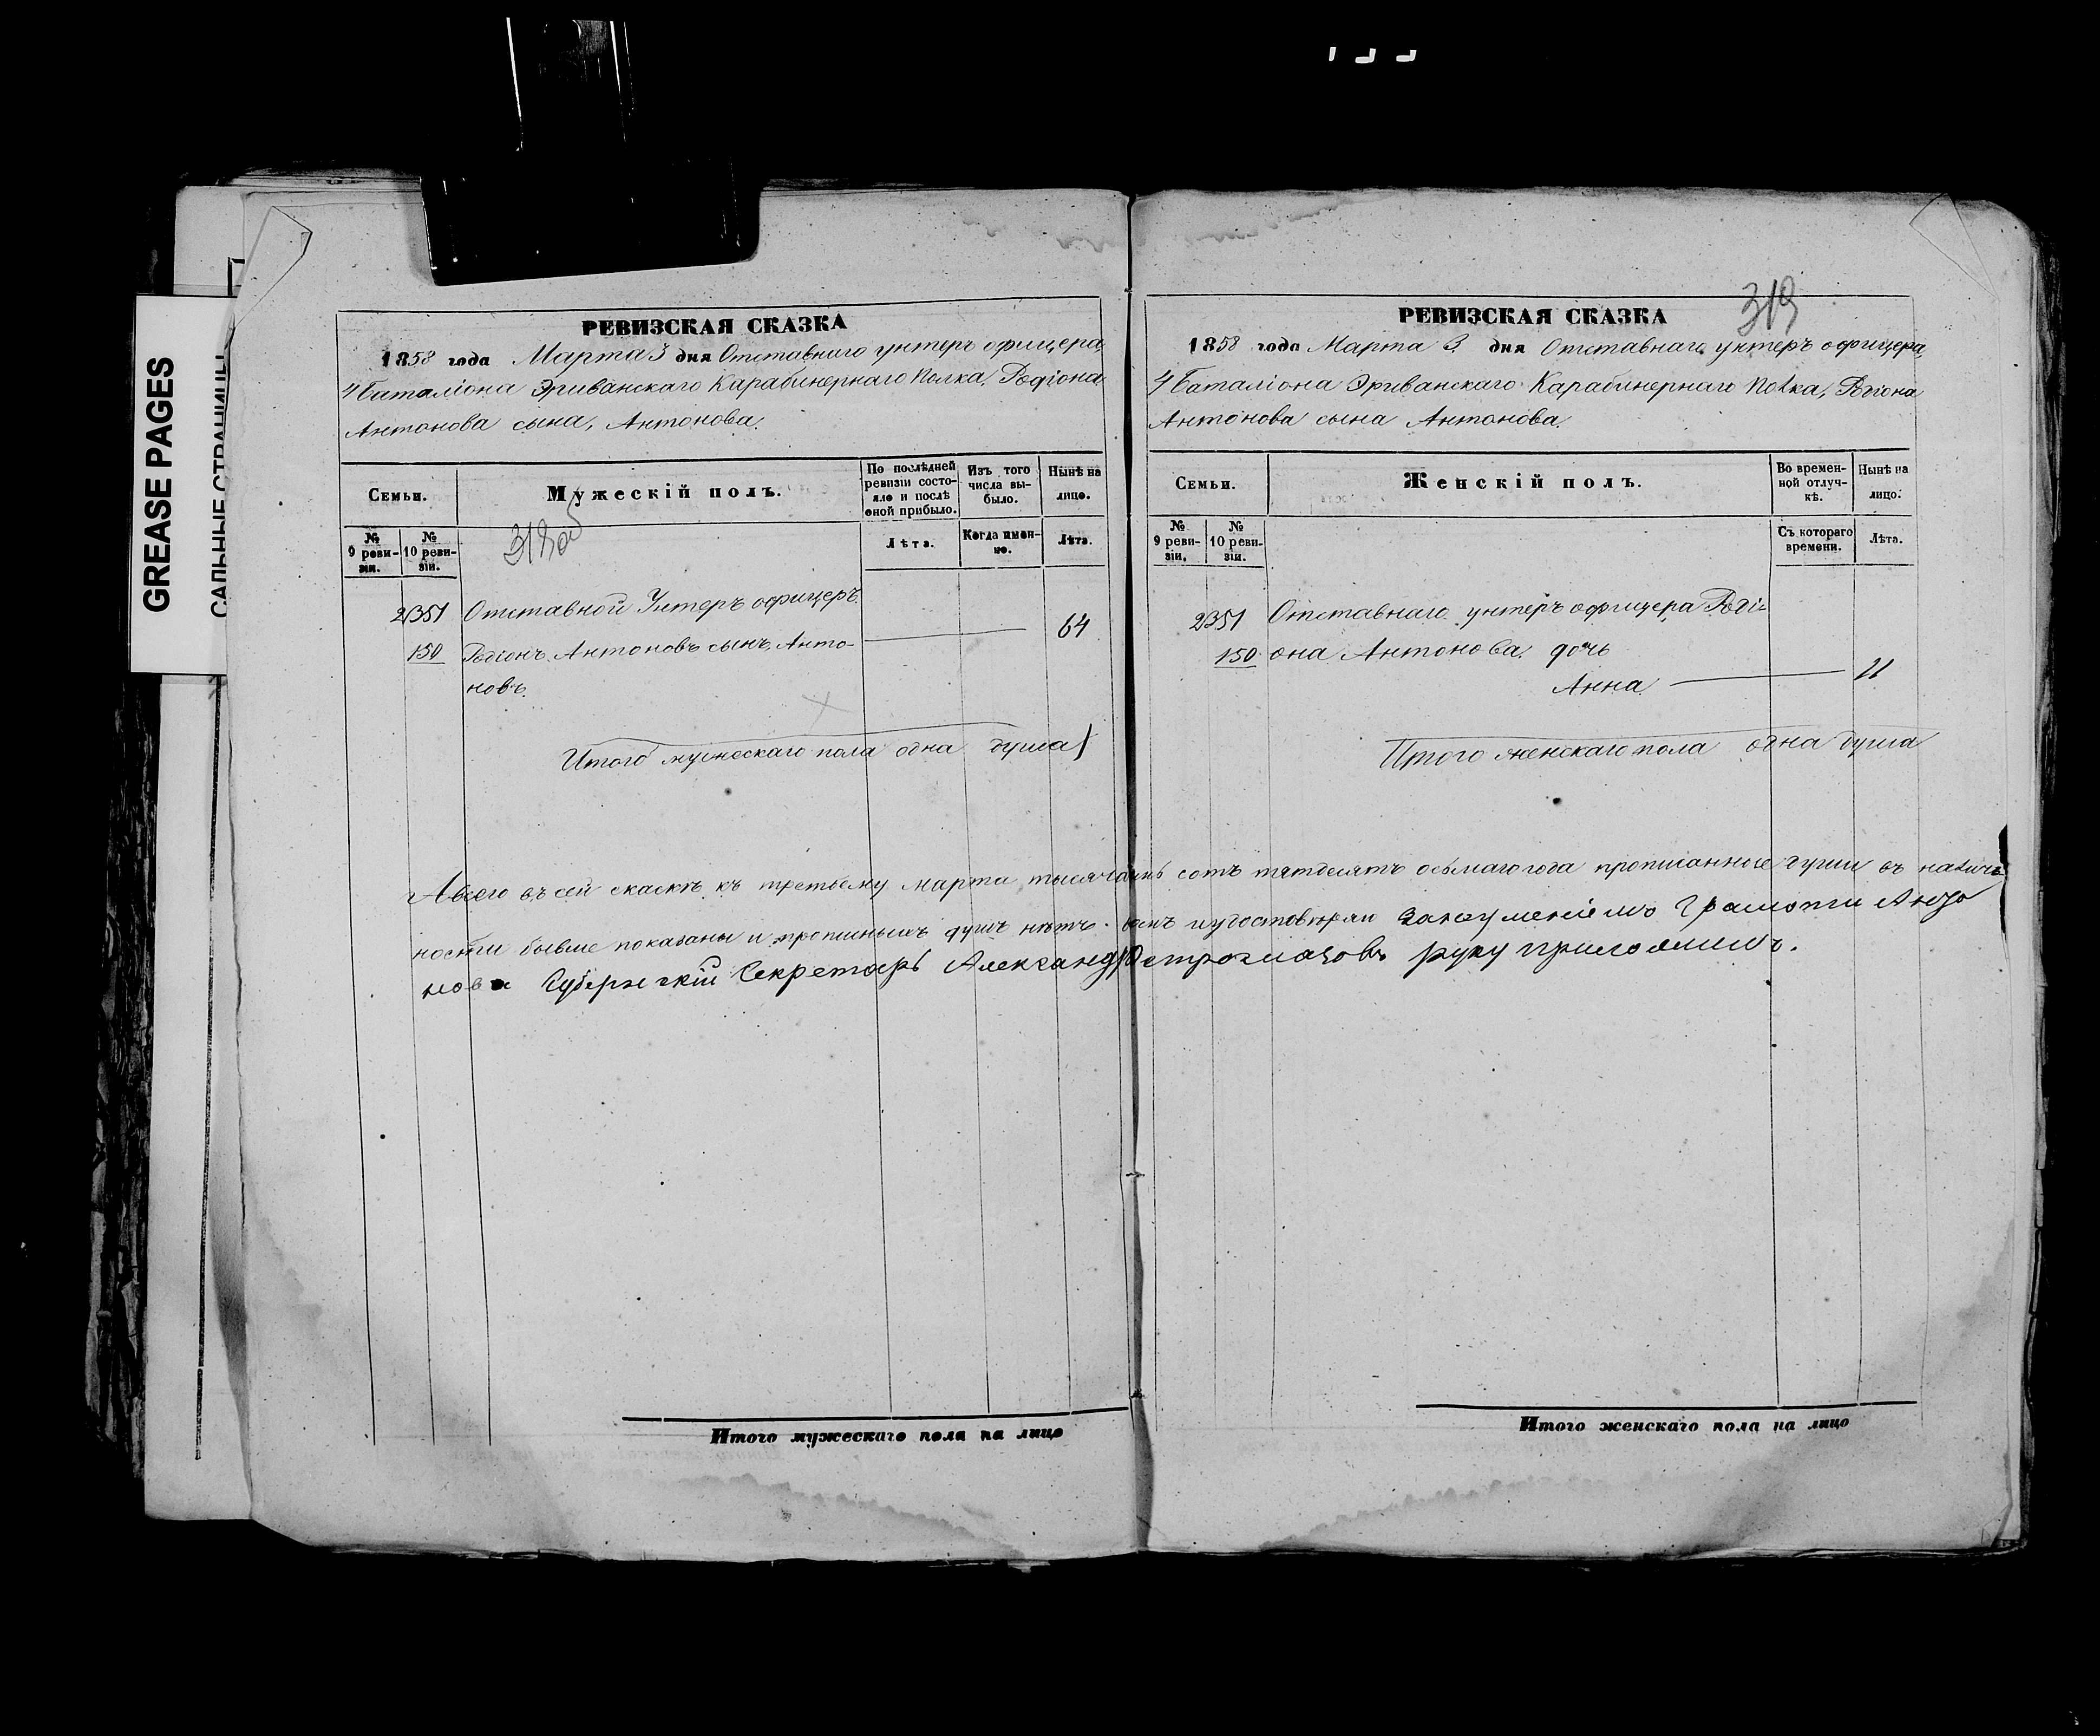 GREASE PAGES
САЛЬНЫЕ СТРАНИЦЫ
РЕВИЗСКАЯ СКАЗКА
1858 года Марта 3 дня Отставнаго унтеръ офицера,
4 Баталіона Эриванскаго Карабинернаго Полка, Родіона
Антонова сына, Антонова.
Семьи.
Мужескій полъ.
По послѣдней ревизіи состояло и послѣ оной прибыло.
Изъ того числа выбыло.
Нынѣ на лицо.
№ 9 ревизіи.
№ 10 ревизіи.
318 об
Лѣта.
Когда именно.
Лѣта.
2351 Отставной Унтеръ офицеръ
150 Родіонъ Антоновъ сынъ, Анто-
новъ. 64
Итого мужескаго пола одна душа
Итого мужескаго пола на лицо
319
РЕВИЗСКАЯ СКАЗКА
1858 года Марта 3 дня Отставнаго унтеръ офицера
4 Баталіона Эриванскаго Карабинернаго Полка, Родіона
Антонова сына Антонова.
Семьи.
Женскій полъ.
Во временной отлучкѣ.
Нынѣ на лицо.
№ 9 ревизіи.
№ 10 ревизіи.
Съ котораго времени.
Лѣта.
2351 Отставнаго унтеръ офицера Роді-
150 она Антонова дочь
Анна 11
Итого женскаго пола одна душа
А всего въ сей сказкѣ къ третьему марта тысяча сотъ пятдесятъ осьмаго года прописанные души въ налич-
ности бывше показаны и прописныхъ душъ нѣтъ. въ неумѣніемъ Грамоти Анто
нова Губернскій Секретарь Александръ руку приложилъ.
Итого женскаго пола на лицо